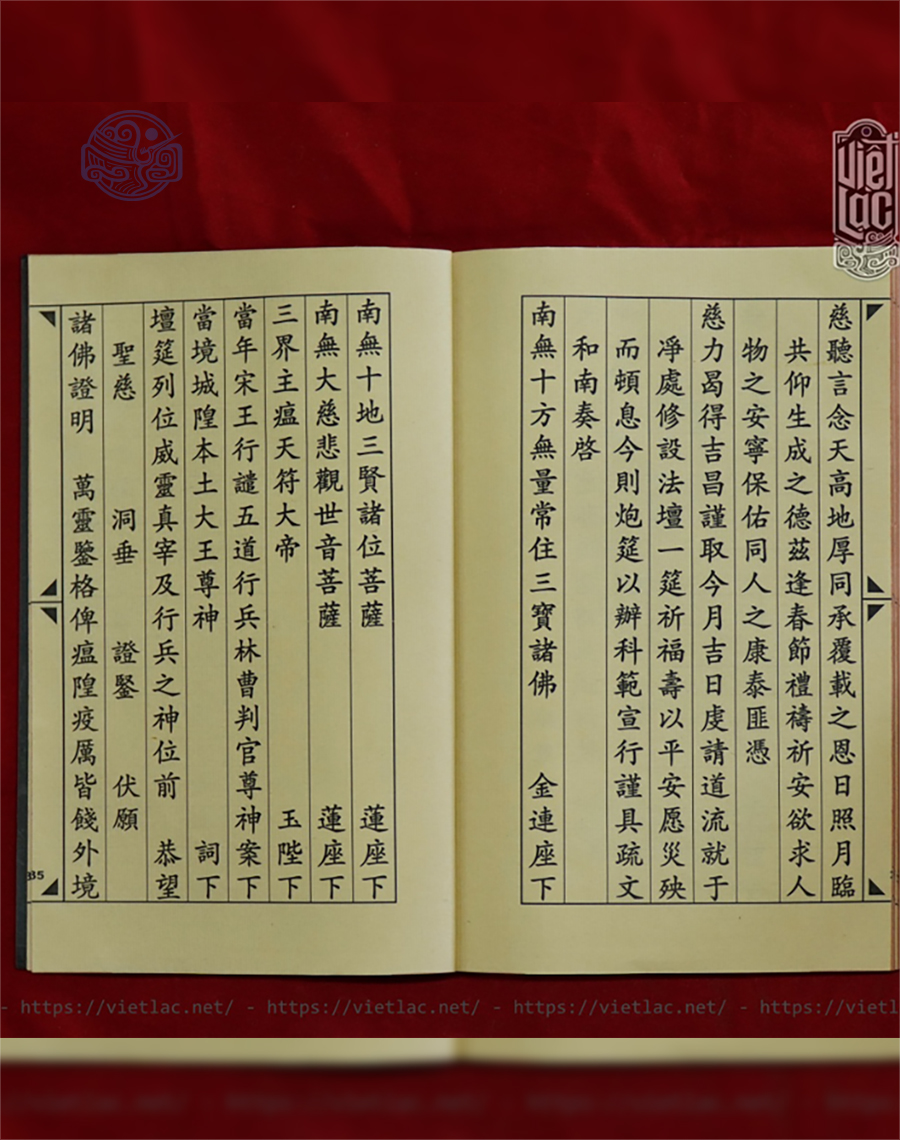 Việt Lạc
慈聽言念天高地厚同承覆載之恩日照月臨
共仰生成之德茲逢春節禮禱祈安欲求人
物之安寧保佑同人之康泰匪憑
慈力曷得吉昌謹取今月吉日虔請道流就于
凈處修設法壇一筵祈福壽以平安愿災殃
而頓息今則炮筵以辦科範宣行謹具疏文
和南奏啓
南無十方無量常住三寶諸佛 金連座下
南無十地三賢諸位菩薩 蓮座下
南無大慈悲觀世音菩薩 蓮座下
三界主瘟天符大帝 玉陛下
當年宋王行譴五道行兵林曹判官尊神案下
當境城隍本土大王尊神 詞下
壇筵列位威靈真宰及行兵之神位前 恭望
聖慈 洞垂 證鑒 伏願
諸佛證明 萬靈鑒格俾瘟隍疫厲皆餞外境
35
- https://vietlac.net/ - https://vietlac.net/ - https://vietlac.net/ - https://vietlac.net/